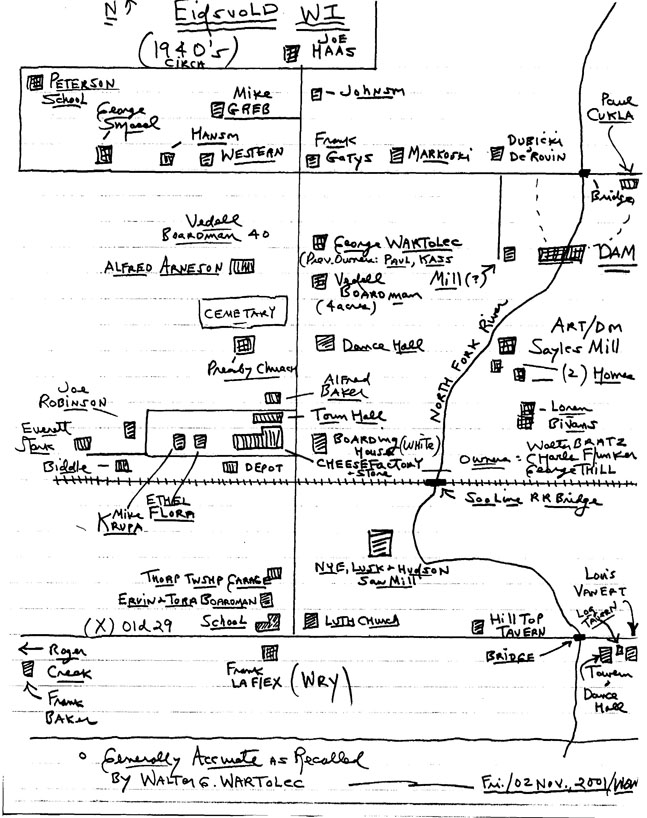 N
EIDSVOLD WI
(1940's)
CIRCA
JOE
HAAS
PETERSON
School
George
Mike
GREB
JOHNSON
Paul
CUKLA
HANSON
WESTERN
Frank
GATYS
MARKOSKI
DUBICKI
DEROUIN
Bridge
Vedell
Boardman 40
George WARTOLEC
(Prev. Owner: PAUL, KASS
DAM
ALFRED ARNESON
Vedell
BOARDMAN
(4 acre)
Mill (?)
CEMETARY
NORTH FORK River
ART/DM
Sayles Mill
Dance Hall
Presby Church
(2) Homes
Joe
ROBINSON
Alfred
BAKER
Town Hall
Loren
Bivans
Everett
Stark
BOARDING
House (WHITE)
CHEESE FACTORY
+ Store
Owners: Walter BRATZ
Charle Flunker
George THILL
Biddle
DEPOT
Soo Line RR Bridge
Mike
KRUPA
ETHEL
FLORA
NYE, LUSK & HUDSON
Saw Mill
THORP TWSHP GARAGE
ERVIN & TORA BOARDMAN
Louis
VANERT
LOG
TAVERN
(X) Old 29
School
LUTH CHURCH
Hill Top
TAVERN
BRIDGE
Roger
Creek
Frank
LAFLEX (WRY)
Tavern
Dance
Hall
Frank
BAKER
Generally Accurate AS Recalled
BY WALTER G. WARTOLEC
Fri./02 NOV., 2001/WGW